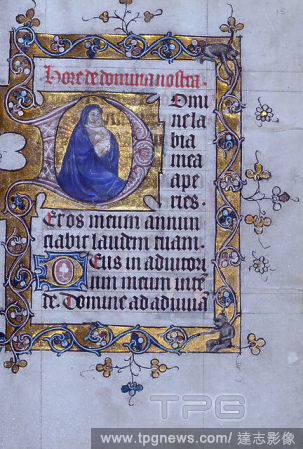 Hore de domina nostra.
Domi
ne la
bia
mea
ape
ries.
Et os meum annun
ciabit laudem tuam.
Deus in adiutori
um meum inte
de. Domine ad adiuua
TPG
www.tpgnews.com/ 達志影像